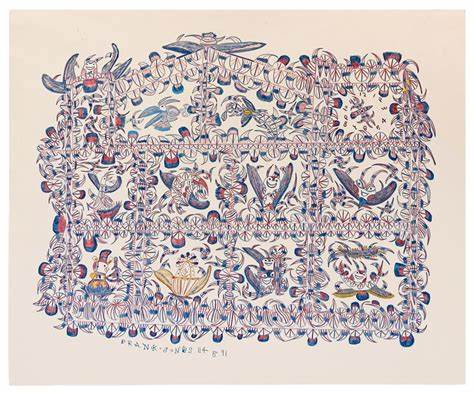 FRANK JONES 114591